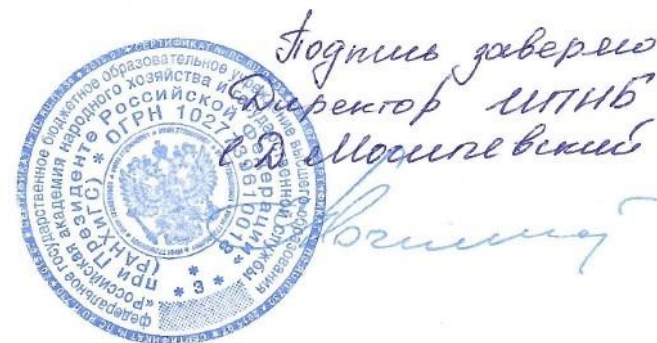 Подпись заверяю
Директор ИПНБ
С Д Могилевский
федеральное государственное бюджетное образовательное учреждение высшего образования
«Российская академия народного хозяйства и государственной службы
при Президенте Российской Федерации»
(РАНХиГС) * ОГРН 1027739610018
* 3 *